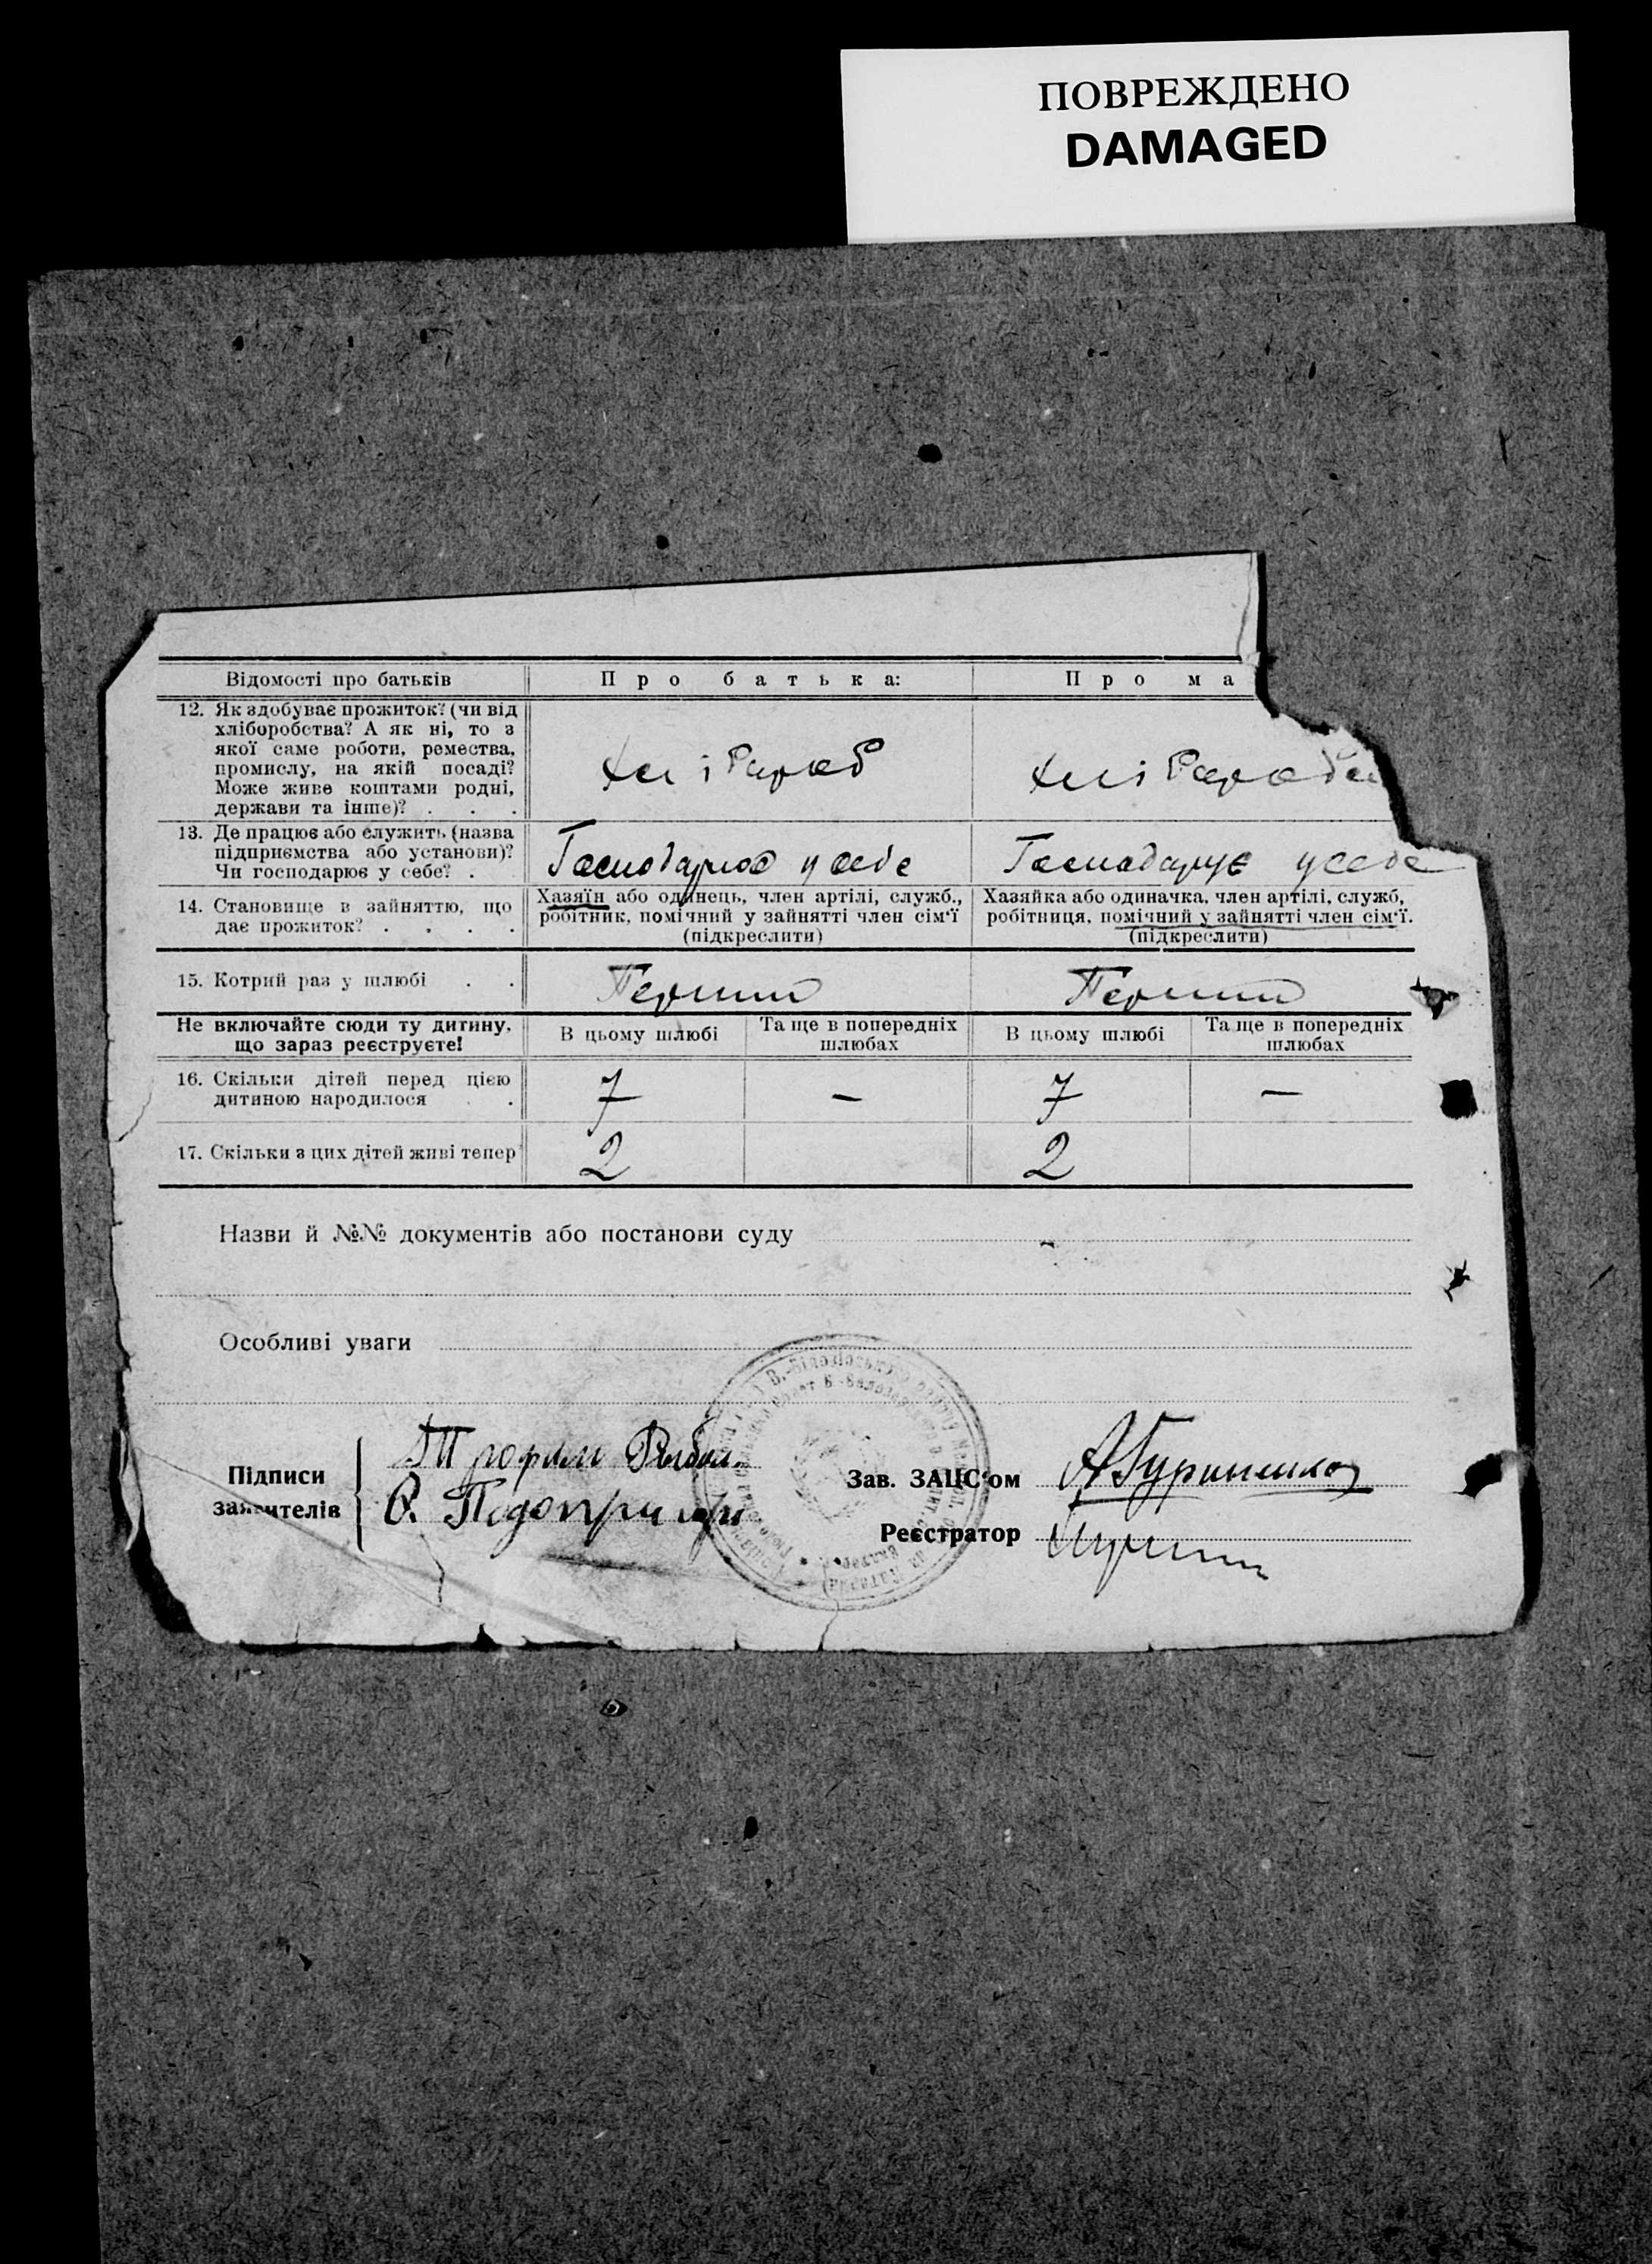 ПОВРЕЖДЕНО
DAMAGED
Відомості про батьків
Про батька:
Про ма
12. Як здобуває прожиток? (чи від
хліборобства? А як ні, то з
якої саме роботи, ремества,
промислу, на якій посаді?
Може живе коштами родні,
держави та інше)? . . .
Хлібороб
Хлібороб
13. Де працює або служить (назва
підприємства або установи)?
Чи господарює у себе? .
Господарює у себе
Господарує у себе
14. Становище в зайняттю, що
дає прожиток? . . . .
Хазяїн або одинець, член артілі, служб.,
робітник, помічний у зайнятті член сім'ї
(підкреслити)
Хазяйка або одиначка, член артілі, служб,
робітниця, помічний у зайнятті член сім'ї.
(підкреслити)
15. Котрий раз у шлюбі . .
Перший
Перший
Не включайте сюди ту дитину,
що зараз реєструєте!
В цьому шлюбі
Та ще в попередніх
шлюбах
В цьому шлюбі
Та ще в попередніх
шлюбах
16. Скільки дітей перед цією
дитиною народилося . .
7
—
7
—
17. Скільки з цих дітей живі тепер
2
2
Назви й №№ документів або постанови суду
Особливі уваги
Підписи
заявителів
Трофим
О.
Зав. ЗАЦС'ом
Реєстратор